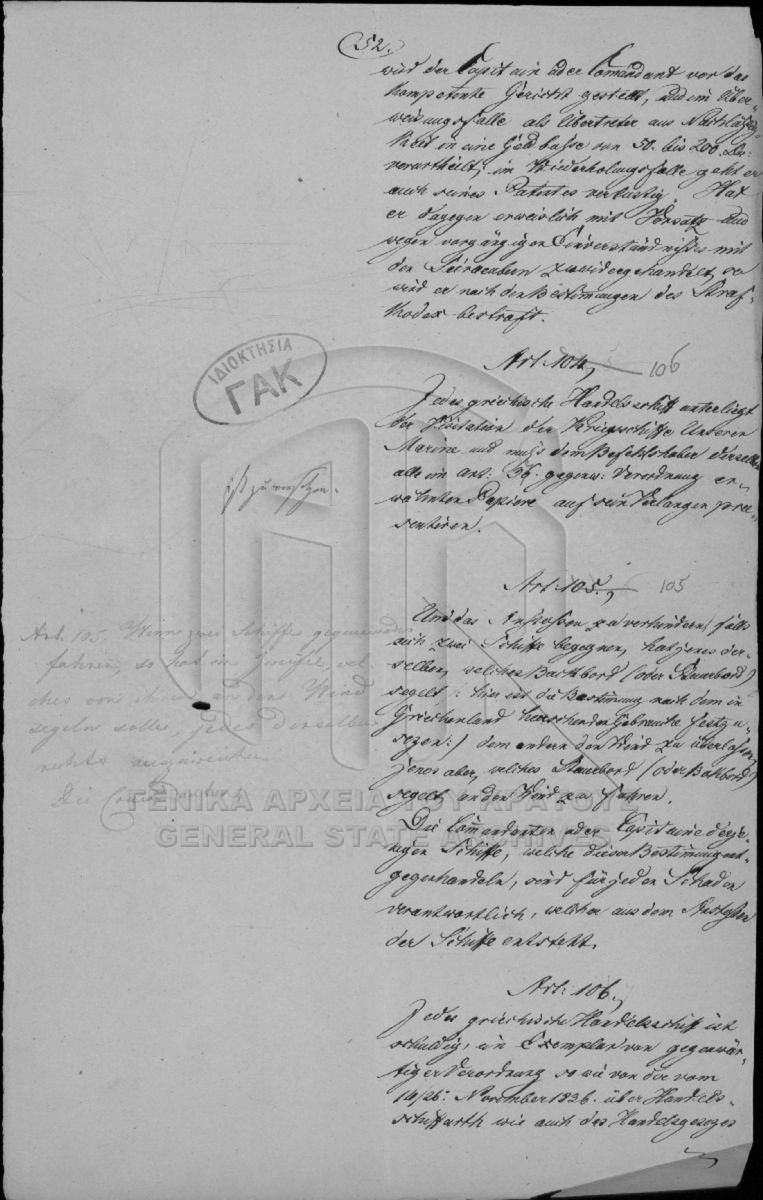 52.
wird der Capitain oder Comandant vor das
kompetente Gericht gestellt, und im Über-
weisungsfalle als Übertreter aus Nachlässig-
keit in eine Geldbusse von 50. bis 200. Dr.
verurtheilt; im Wiederholungsfalle geht er
auch seines Patentes verlustig. Hat
er dagegen erweislich mit Vorsatz und
wegen vorgängigen Einverständnisses mit
den Seeräubern zuwidergehandelt, so
wird er nach den Bestimmungen des Straf-
kodex bestraft.
Art. 104, 106
Jedes griechische Handelsschiff unterliegt
der Visitation der Kriegsschiffe Unserer
Marine und muß dem Befehlshaber derselben
alle im Art: 56. gegenw: Verordnung er-
wähnten Papiere auf sein Verlangen prae-
sentiren.
ist zu
Art: 105., 105
Um das Anstossen zu verhindern, falls
sich zwei Schiffe begegnen, hat jenes der-
selben, welches Backbord (oder Steuerbord)
segelt: hier ist die Bestimmung nach dem in
Griechenland herrschenden Gebrauche festzu-
sezen:) dem andern den Wind zu überlassen,
jenes aber, welches Steuerbord (oder Backbord)
segelt, an den Wind zu fahren.
Die Commandanten oder Capitaine derje-
nigen Schiffe, welche dieser Bestimmung ent-
gegenhandeln, sind für jeden Schaden
verantwortlich, welcher aus dem Anstossen
der Schiffe entsteht.
Art. 105. Wenn zwei Schiffe gegeneinander
fahren, so hat im Zweifel, wel-
ches von ihnen an den Wind
segeln solle, jedes derselben
rechts auszuweichen
Die
Art: 106.,
Jedes griechische Handelsschiff ist
schuldig, ein Exemplar von gegenwär-
tiger Verordnung so wie von der vom
14/26: November 1836. über Handels-
schiffarth wie auch des Handelsgesezes
ΙΔΙΟΚΤΗΣΙΑ
ΓΑΚ
ΓΕΝΙΚΑ ΑΡΧΕΙΑ ΤΟΥ ΚΡΑΤΟΥΣ
GENERAL STATE ARCHIVES